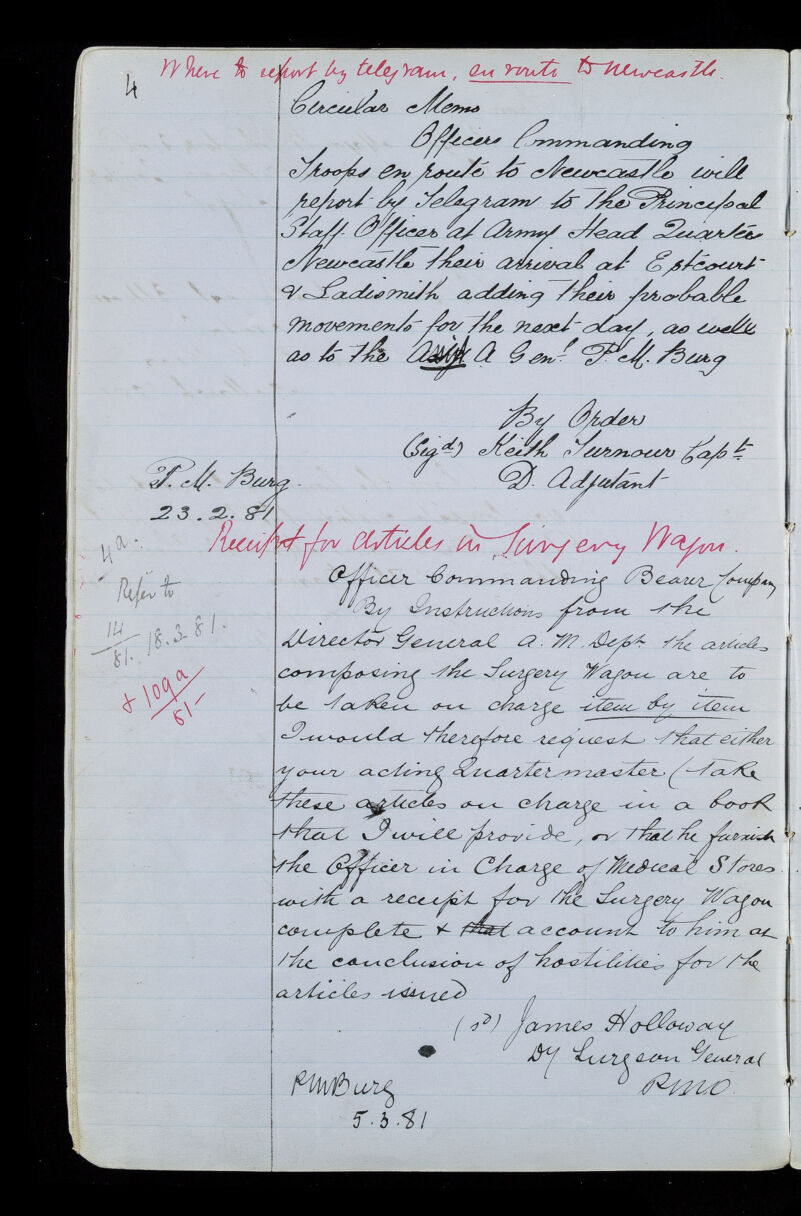 4
Where to report by telegram, en route to Newcastle.
Circular Memo
Officers Commanding
Troops en route to Newcastle will
report by Telegram to the Principal
Staff Officer at Army Head Quarters
Newcastle their arrival at Estcourt
& Ladismith adding their probable
movements for the next day, as well
as to the A Genl P. M. Burg
By Order
(Sigd) Keith Turnour Capt
D. Adjutant
P. M. Burg.
23.2.81
Receipt for Articles in Surgery Wagon.
4a.
Refer to
14/81. 18.3.81.
& 109a/81
Officer Commanding Bearer Company
By Instructions from the
Director General A. M. Dept the articles
composing the Surgery Wagon are to
be taken on charge item by item
I would therefore request that either
your acting Quartermaster (take
these articles on charge in a book
that I will provide, or that he furnish
the Officer in Charge of Medical Stores
with a receipt for the Surgery Wagon
complete & that account to him at
the conclusion of hostilities for the
articles issued
(sd) James Holloway
Dy Surgeon General
PMO.
PMBurg
5.3.81